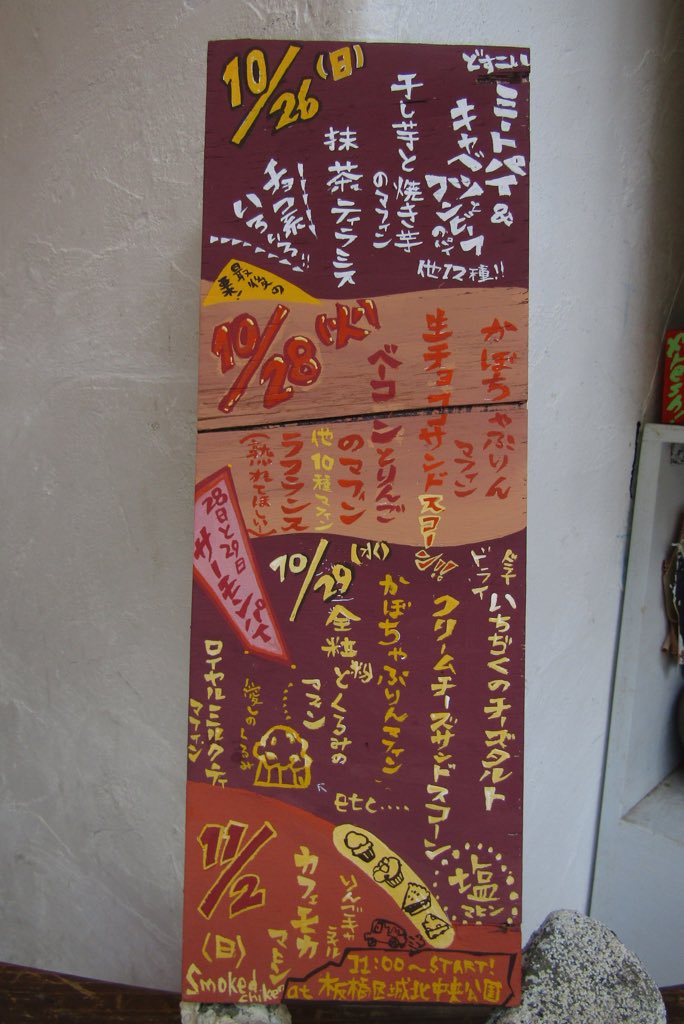 10/26(日)
どすこい
ミートパイ&
キャベツとコンビーフ
のパイ
干し芋と焼き芋
のマフィン
抹茶ティラミス
チョコ系
いろいろ!!
他12種!!
最後の
栗!
10/28(火)
かぼちゃぷりん
マフィン
生チョコサンド
スコーン!!
ベーコンとりんご
のマフィン
他10種マフィン
ラフランス
(熟れてほしい)
28日と29日
サーモンパイ
10/29(水)
ドライ
いちぢくのチーズタルト
クリームチーズサンドスコーン
かぼちゃぷりんマフィン
全粒粉とくるみの
マフィン
愛しのくるみ
ロイヤルミルクティ
マフィン
etc....
11/2
(日)
塩
マフィン
カフェモカ
マフィン
りんごキャラメル
Smoked
chiken
11:00〜START!
at 板橋区城北中央公園